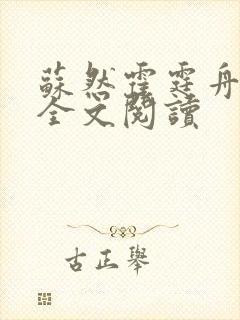 蘇然霍霆舟
全文閱讀
古正舉